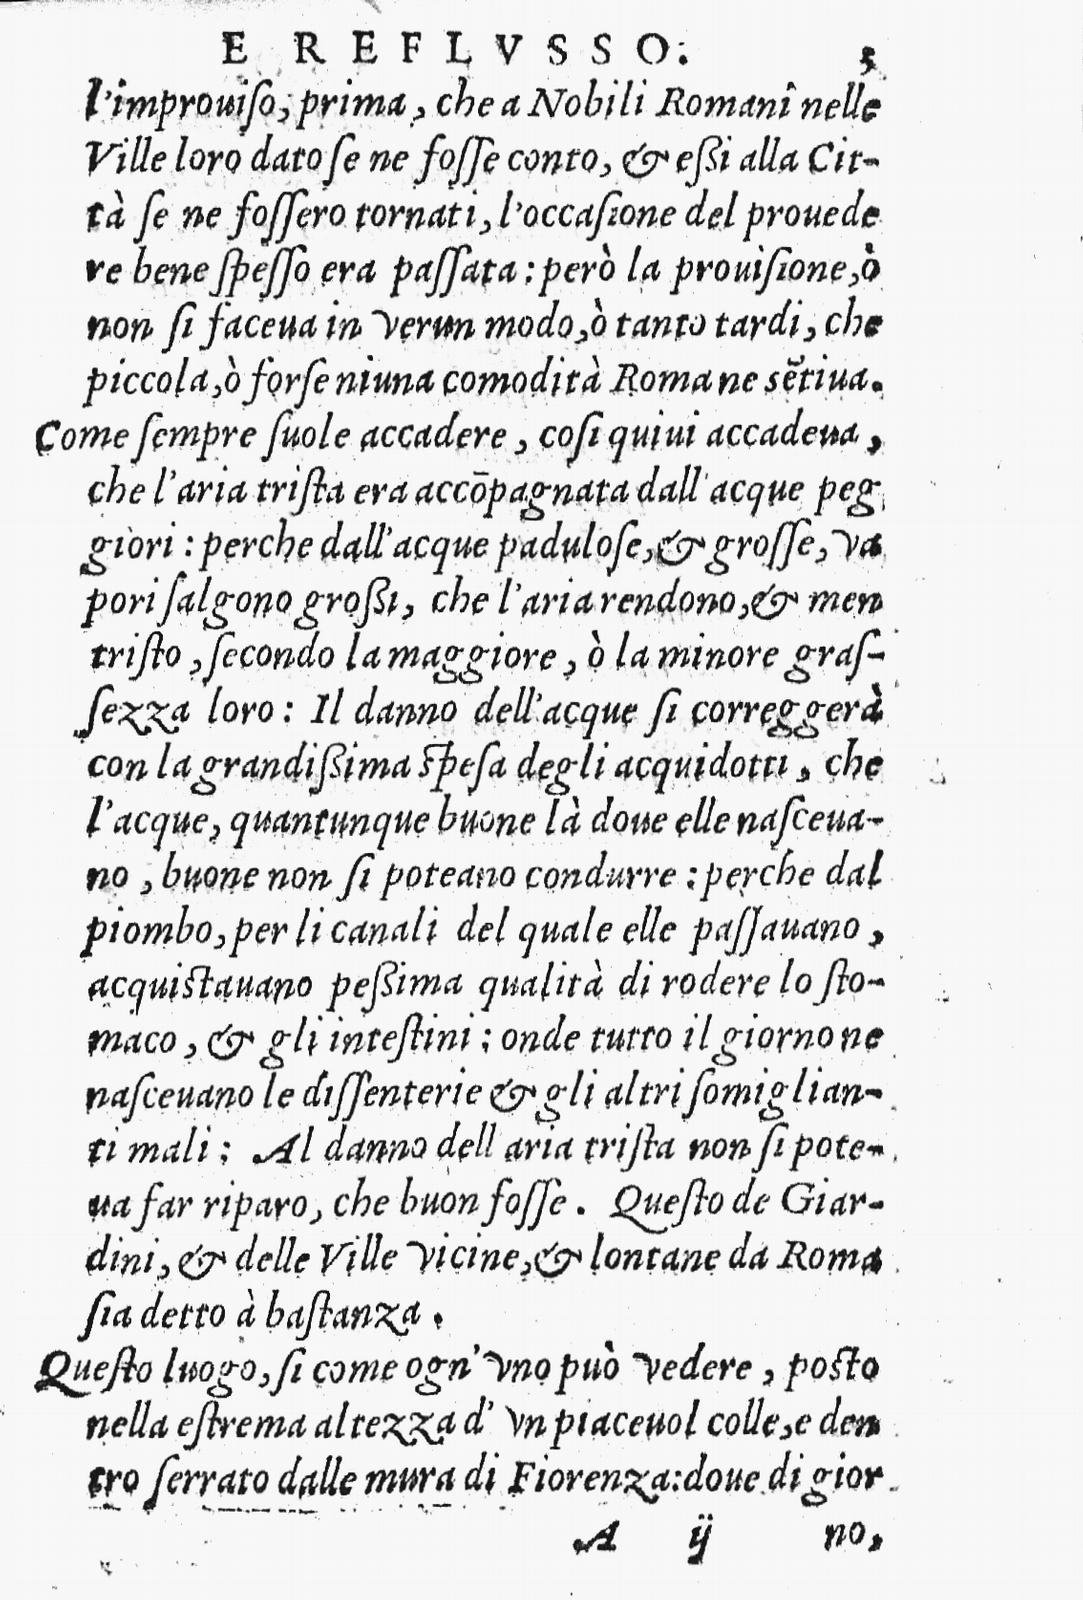 E REFLVSSO. 5
l'improuiſo, prima, che a Nobili Romani nelle
Ville loro dato ſe ne foſſe conto, & eßi alla Cit-
tà ſe ne foſſero tornati, l'occaſione del prouede
re bene ſpeſſo era paſſata: però la prouiſione, ò
non ſi faceua in verun modo, ò tanto tardi, che
piccola, ò forſe niuna comodità Roma ne sẽtiua.
Come ſempre ſuole accadere, coſi quiui accadeua,
che l'aria triſta era accōpagnata dall'acque peg
giori: perche dall'acque paduloſe, & groſſe, va
pori ſalgono großi, che l'aria rendono, & men
triſto, ſecondo la maggiore, ò la minore graſ-
ſezza loro: Il danno dell'acque ſi correggerà
con la grandißima speſa degli acquidotti, che
l'acque, quantunque buone là doue elle naſceua-
no, buone non ſi poteano condurre: perche dal
piombo, per li canali del quale elle paſſauano,
acquistauano peßima qualità di rodere lo ſto-
maco, & gli inteſtini; onde tutto il giorno ne
naſceuano le diſſenterie & gli altri ſomiglian-
ti mali; Al danno dell aria triſta non ſi pote-
ua far riparo, che buon foſſe. Queſto de Giar-
dini, & delle Ville vicine, & lontane da Roma
ſia detto à baſtanza.
Queſto luogo, ſi come ogn'vno può vedere, poſto
nella eſtrema altezza d'vn piaceuol colle, e den
tro ſerrato dalle mura di Fiorenza: doue di gior
A ij no,